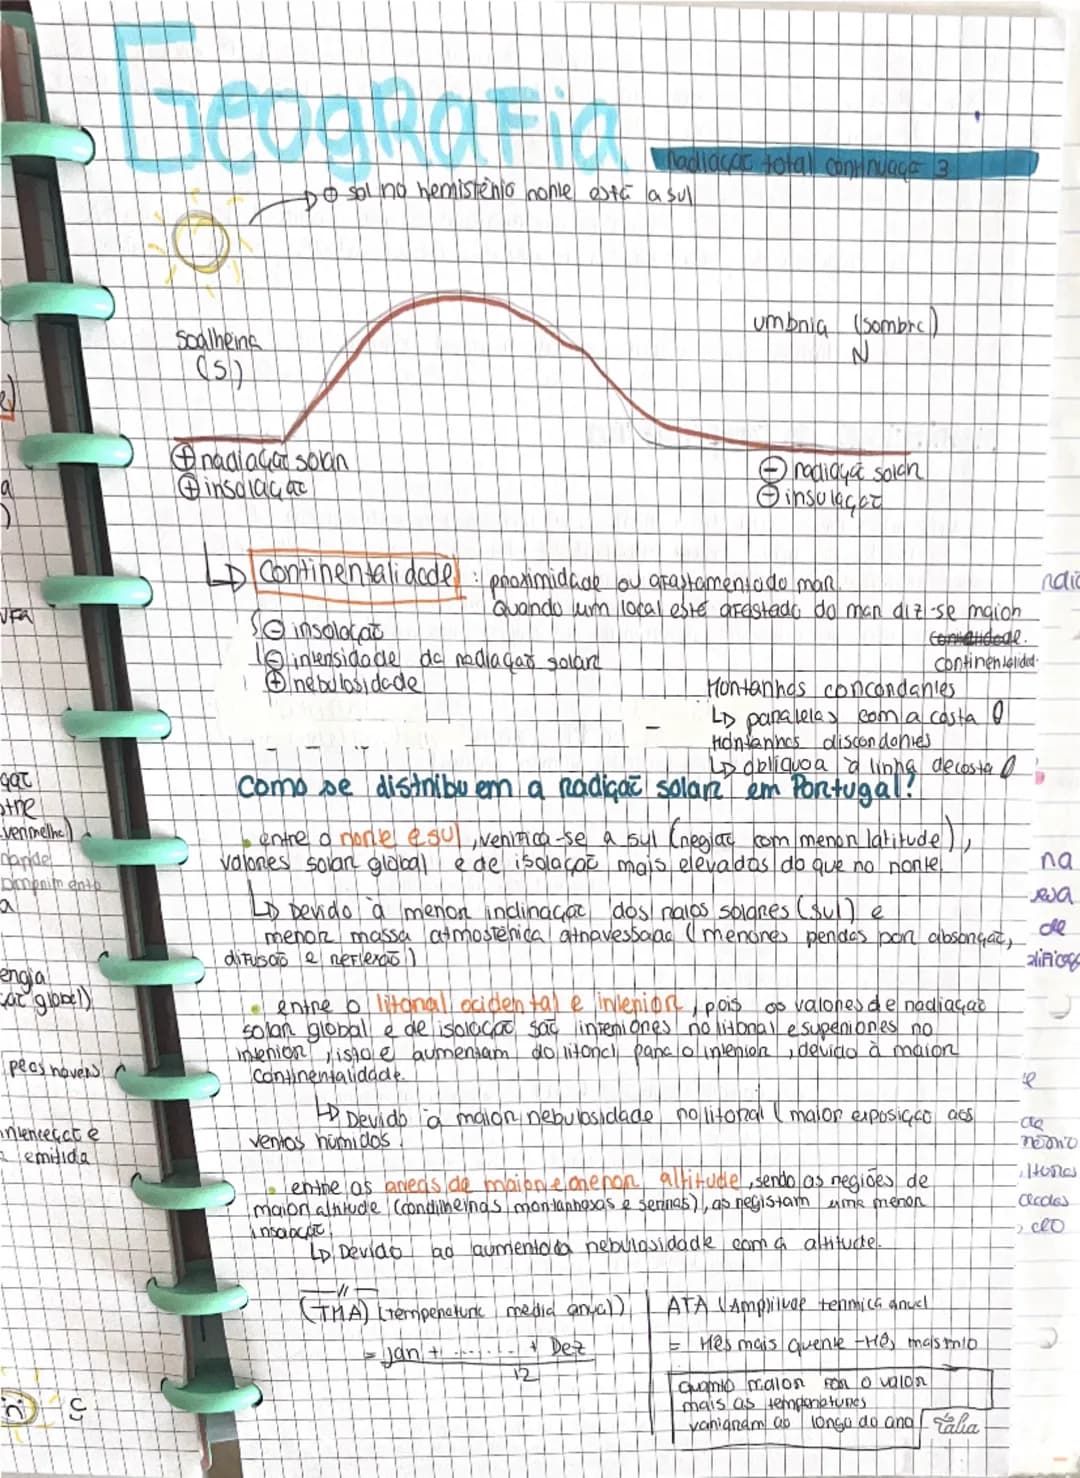 Geografia
Radiação total continuação 3
o sol no hemisfério norte está a sul
Soalheira
(S)
umbria (sombra)
N
⊕ radiação solar
⊕ insolação
⊖ radiação solar
⊖ insolação
↳ Continentalidade : proximidade ou afastamento do mar.
Quando um local esté afastado do mar diz-se maior
continentalidad.
⊖ insolação
⊖ intensidade da radiação solar
⊕ nebulosidade
Montanhas concordantes
↳ paralelas com a costa
Montanhas discordantes
↳ obliquoa à linha de costa
Como se distribuem a radiação solar em Portugal?
entre o norte e sul, verifica-se a sul (região com menor latitude),
valores solar global e de isolação mais elevadas do que no norte.
↳ Devido à menor inclinação dos raios solares (sul) e
menor massa atmosférica atravessada (menores perdas por absorção,
difusão e reflexão)
entre o litoral ocidental e interior, pois os valores de radiação
solar global e de isolação são inferiores no litoral e superiores no
interior, isto é aumentam do litoral para o interior, devido à maior
continentalidade.
↳ Devido à maior nebulosidade no litoral (maior exposição aos
ventos húmidos.
entre as areas de maior e menor altitude, sendo as regiões de
maior altitude (cordilheiras montanhosas e serras), as registam uma menor
insolação.
↳ Devido ao aumento da nebulosidade com a altitude.
(TMA) (temperatura media anual)
= jan + ........ + Dez
12
ATA (Amplitude termica anual
= Mês mais quente - Mês mais frio
Quanto maior for o valor
mais as temperatures
variaram ao longo do ano
Tália
ção
vermelho)
comprimento
a
energia
ção global)
emitida
na
de
e
de